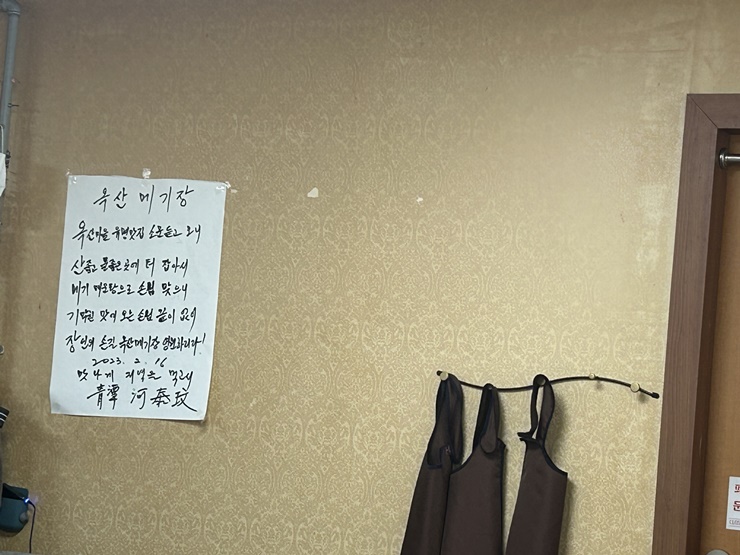 옥산 메기장
옥산마을 유명맛집 소문듣고 오니
산좋고 물좋은곳에 터 잡아서
메기 매운탕으로 손님 맞으니
기막힌 맛에 오는 손님 끝이 없어
장인의 손길 옥산메기장 영원하리라!
2023. 2. 16
맛나게 저녁을 먹고서
靑潭 河泰玟